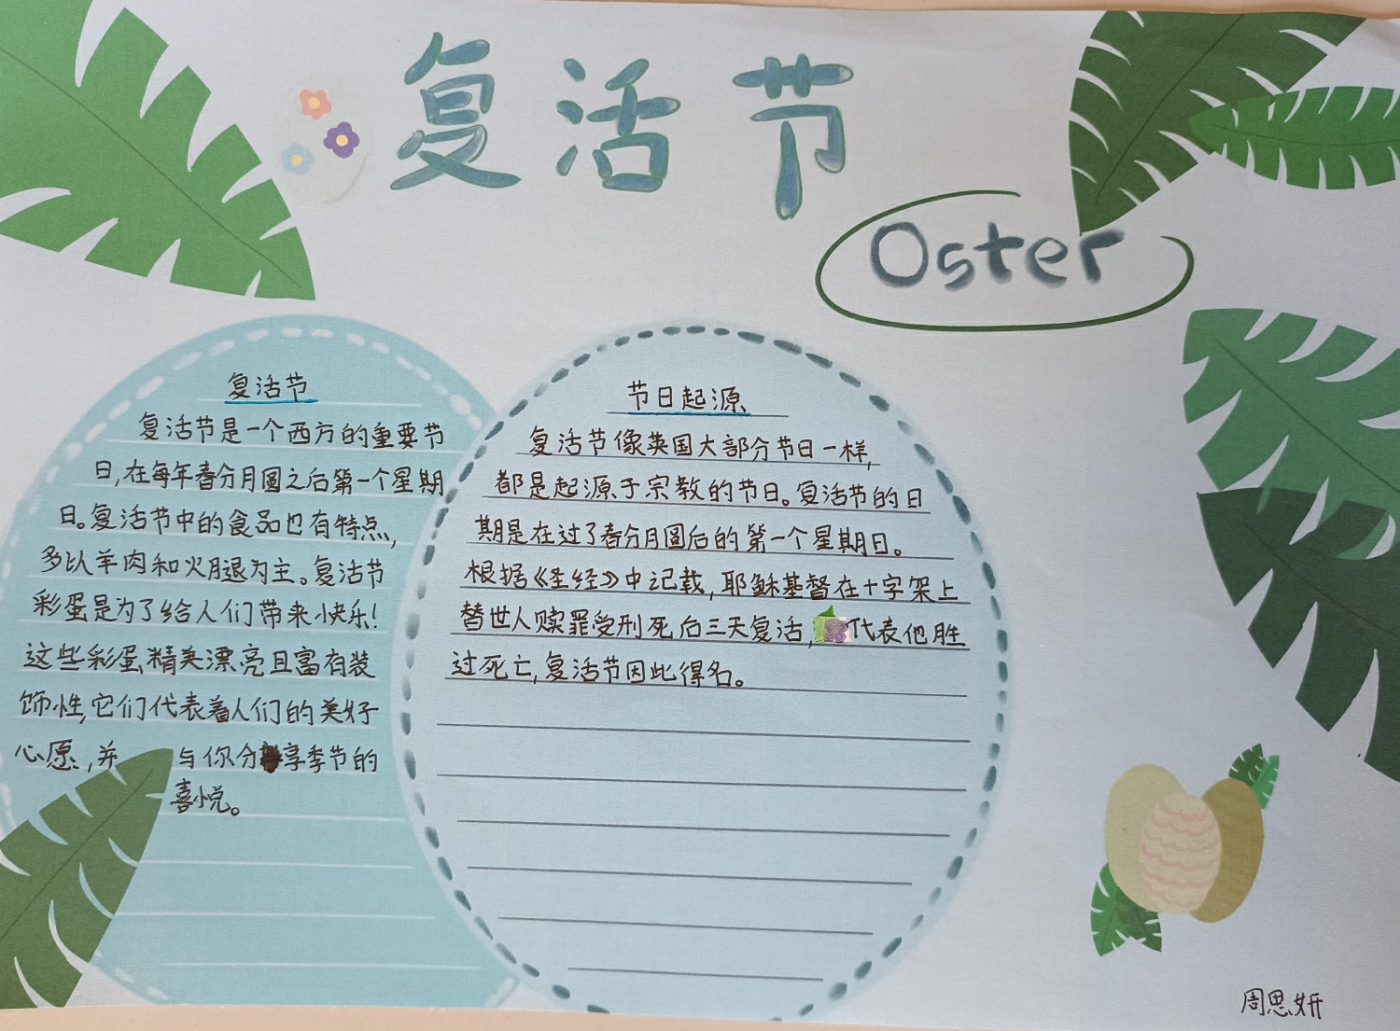 复活节
Oster
复活节
复活节是一个西方的重要节
日,在每年春分月圆之后第一个星期
日。复活节中的食品也有特点,
多以羊肉和火腿为主。复活节
彩蛋是为了给人们带来小快乐!
这些彩蛋精美漂亮且富有装
饰性,它们代表着人们的美好
心愿,并与你分享季节的
喜悦。
节日起源
复活节像英国大部分节日一样,
都是起源于宗教的节日。复活节的日
期是在过了春分月圆后的第一个星期日。
根据《圣经》中记载,耶稣基督在十字架上
替世人赎罪受刑死后三天复活,代表他胜
过死亡,复活节因此得名。
周思妍